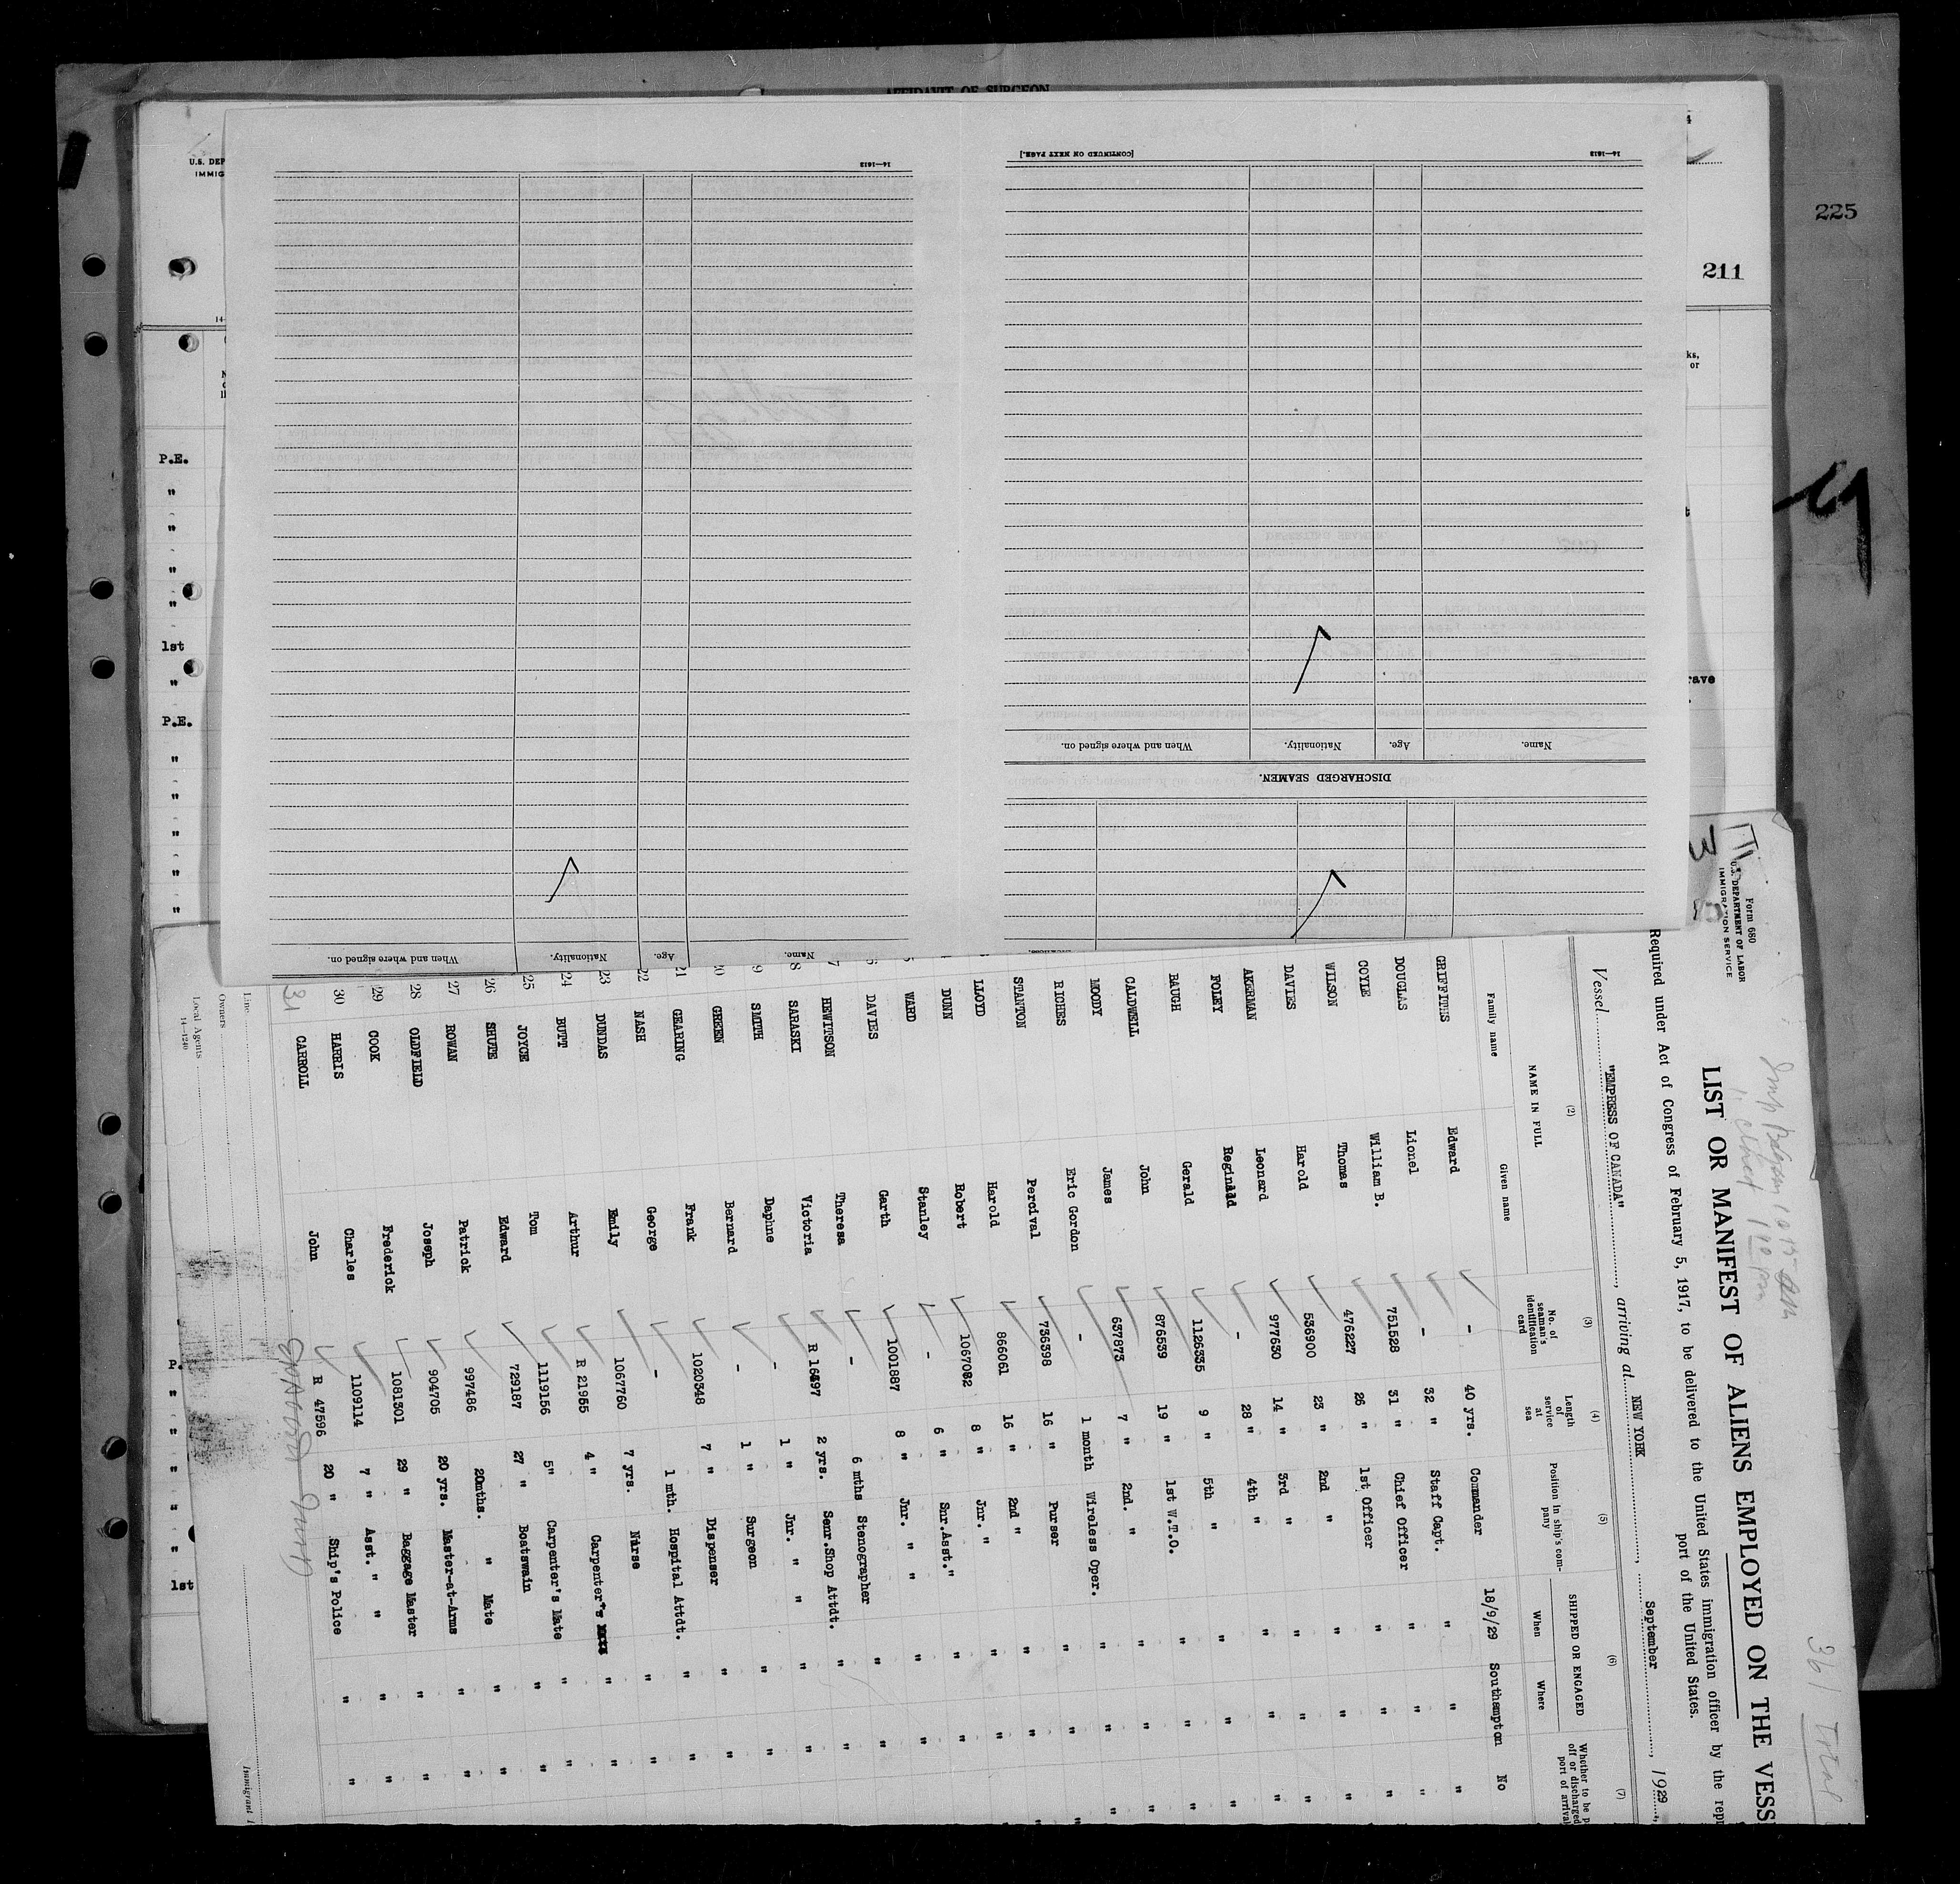 AFFIDAVIT OF SURGEON
225
211
U.S. DEP
IMMIG
14—1613
[CONTINUED ON NEXT PAGE.]
14—1613
ks,
or
P.E.
"
"
"
"
1st
"
P.E.
"
"
"
"
"
rave
DISCHARGED SEAMEN.
Name. Age. Nationality. When and where signed on.
Name. Age. Nationality. When and where signed on.
Form 680
U.S. DEPARTMENT OF LABOR
IMMIGRATION SERVICE
36/ Total
LIST OR MANIFEST OF ALIENS EMPLOYED ON THE VESS
Required under Act of Congress of February 5, 1917, to be delivered to the United States immigration officer by the repr
port of the United States.
Vessel "EMPRESS OF CANADA", arriving at NEW YORK, September, 1929,
(2) (3) (4) (5) (6) (7)
NAME IN FULL
Family name Given name
No. of seaman's identification card
Length of service at sea
Position in ship's company
SHIPPED OR ENGAGED
When Where
Whether to be p
off or discharged
port of arrival
GRIFFITHS Edward - 40 yrs. Commander 18/9/29 Southampton No
DOUGLAS Lionel - 32 " Staff Capt. " " "
COYLE William B. 751528 31 " Chief Officer " " "
WILSON Thomas 476227 26 " 1st Officer " " "
DAVIES Harold 536900 23 " 2nd " " " "
AKERMAN Leonard 977630 14 " 3rd " " " "
FOLEY Reginald - 28 " 4th " " " "
BAUGH Gerald 1126335 9 " 5th " " " "
CALDWELL John 876539 19 " 1st W.T.O. " " "
MOODY James 637873 7 " 2nd. " " " "
RICHES Eric Gordon - 1 month Wireless Oper. " " "
STANTON Percival 736398 16 " Purser " " "
LLOYD Harold 866061 16 " 2nd " " "
DUNN Robert 1067082 8 " Jnr. " " "
WARD Stanley - 6 " Snr.Asst." " "
DAVIES Garth 1001887 8 " Jnr. " " " "
HEWITSON Theresa - 6 mths Stenographer " "
SARASKI Victoria R 16597 2 yrs. Senr.Shop Attdt. " "
SMITH Daphne - 1 " Jnr. " " " "
GREEN Bernard - 1 " Surgeon " "
21 GEARING Frank 1020348 7 " Dispenser " "
22 NASH George - 1 mth. Hospital Attdt. " "
23 DUNDAS Emily 1067760 7 yrs. Nurse " "
24 BUTT Arthur R 21955 4 " Carpenter's " "
25 JOYCE Tom 1119156 5" Carpenter's Mate " "
26 SHUTE Edward 729187 27 " Boatswain " "
27 ROWAN Patrick 997486 20mths. " Mate " "
28 OLDFIELD Joseph 904705 20 yrs. Master-at-Arms " "
29 COOK Frederick 1081301 29 " Baggage Master " "
30 HARRIS Charles 1109114 7 " Asst. " " " "
31 CARROLL John R 47596 20 " Ship's Police " "
Line
Owners
Local Agents
14—1240
Immigrant I
P.
"
"
"
"
"
1st